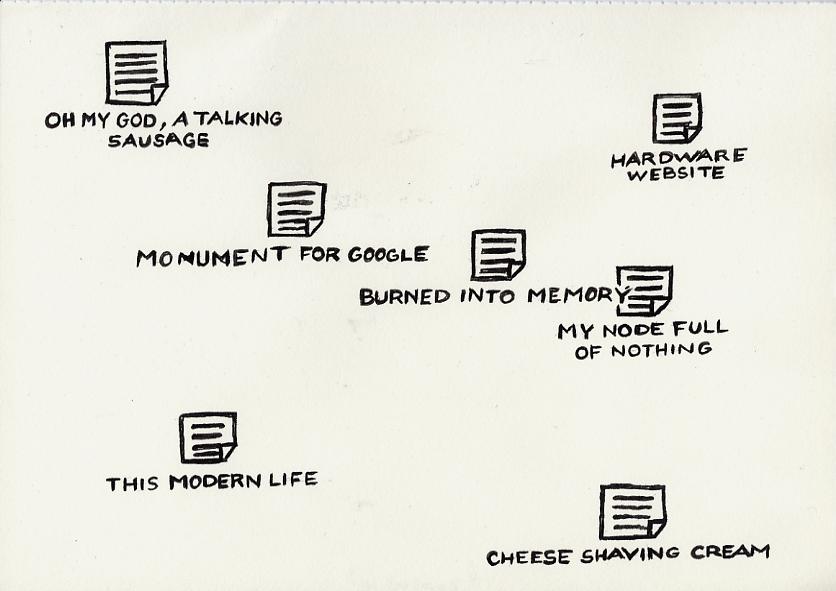 OH MY GOD, A TALKING
SAUSAGE
HARDWARE
WEBSITE
MONUMENT FOR GOOGLE
BURNED INTO MEMORY
MY NODE FULL
OF NOTHING
THIS MODERN LIFE
CHEESE SHAVING CREAM